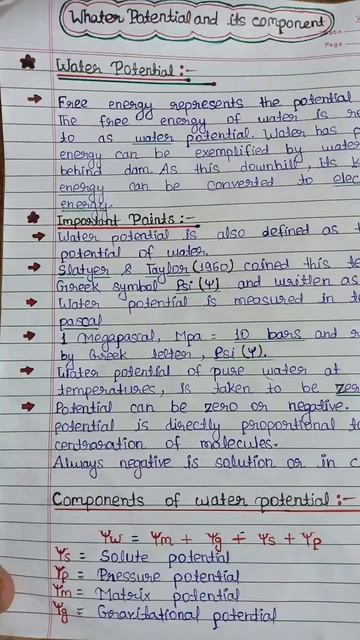 Whater Potential and its component
Page
Water Potential :-
Free energy represents the potential
The free energy of water is re
to as water potential. Water has p
energy can be exemplified by water
behind dam. As this downhill, its k
energy can be converted to elec
energy.
Important Points :-
Water potential is also defined as t
potential of water.
Slatyer & Taylor (1960) coined this te
Greek symbol Psi (Ψ) and written as
Water potential is measured in te
pascal
1 Megapascal, Mpa = 10 bars and r
by Greek letter, Psi (Ψ).
Water potential of pure water at
temperatures, is taken to be zer
Potential can be zero or negative.
potential is directly proportional to
centraration of molecules.
Always negative is solution or in c
Components of water potential :-
Ψw = Ψm + Ψg + Ψs + Ψp
Ψs = Solute potential
Ψp = Pressure potential
Ψm = Matrix potential
Ψg = Gravitational potential